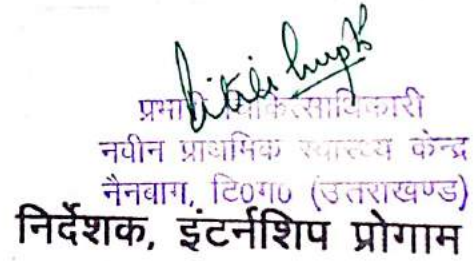 प्रभारी चिकित्साधिकारी
नवीन प्राथमिक स्वास्थ्य केन्द्र
नैनबाग, टि०ग० (उत्तराखण्ड)
निर्देशक, इंटर्नशिप प्रोगाम